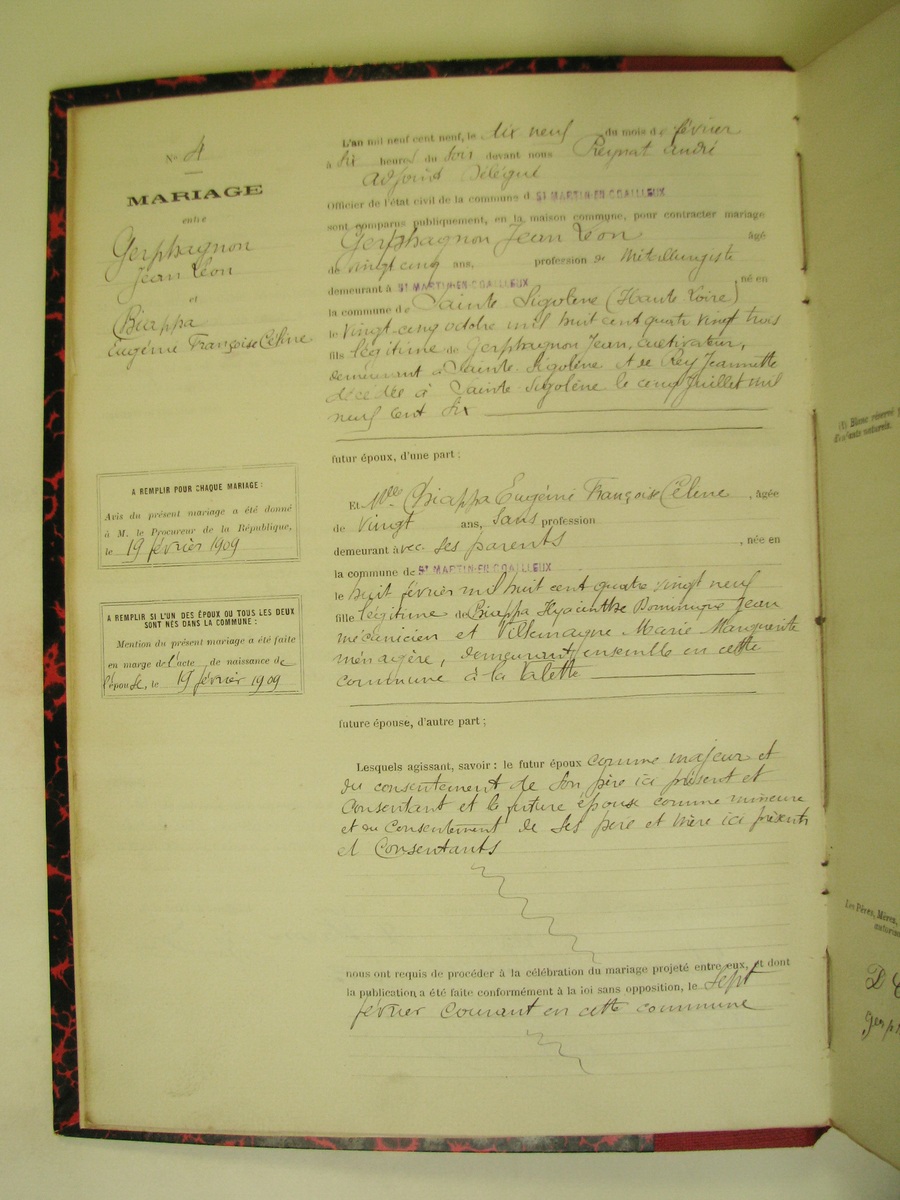 N° 4
MARIAGE
entre
Gerphagnon
Jean Léon
et
Biappa
Eugénie Françoise Céline
A REMPLIR POUR CHAQUE MARIAGE :
Avis du présent mariage a été donné
à M. le Procureur de la République,
le 19 février 1909
A REMPLIR SI L'UN DES ÉPOUX OU TOUS LES DEUX
SONT NÉS DANS LA COMMUNE :
Mention du présent mariage a été faite
en marge de l'acte de naissance de
l'épouse, le 19 février 1909
L'an mil neuf cent neuf, le dix neuf du mois de février
à six heures du soir devant nous Reynat andré
adjoint Délégué
Officier de l'état civil de la commune d ST MARTIN-EN-COAILLEUX
sont comparus publiquement, en la maison commune, pour contracter mariage
Gerphagnon Jean Léon âgé
de vingt cinq ans, profession de Métallurgiste
demeurant à ST MARTIN-EN-COAILLEUX né en
la commune de Sainte Sigolène (Haute Loire)
le vingt cinq octobre mil huit cent quatre vingt trois
fils légitime de Gerphagnon Jean, cultivateur,
demeurant à Sainte Sigolène et de Rey Jeannette
décédée à Sainte Sigolène le cinq Juillet mil
neuf cent six
futur époux, d'une part ;
Et Mlle Biappa Eugénie Françoise Céline, âgée
de vingt ans, sans profession
demeurant avec ses parents, née en
la commune de ST MARTIN-EN-COAILLEUX
le huit février mil huit cent quatre vingt neuf
fille légitime de Biappa Hyacinthe Dominique Jean
mécanicien et Villemagne Marie Marguerite
ménagère, demeurant ensemble en cette
commune à la Valette
future épouse, d'autre part ;
Lesquels agissant, savoir : le futur époux comme majeur et
du consentement de son père ici présent et
consentant et la future épouse comme mineure
et du consentement de ses père et mère ici présents
et consentants
nous ont requis de procéder à la célébration du mariage projeté entre eux, et dont
la publication a été faite conformément à la loi sans opposition, le sept
février courant en cette commune
(1) Blanc réservé
d'enfants naturels.
Les Pères, Mères,